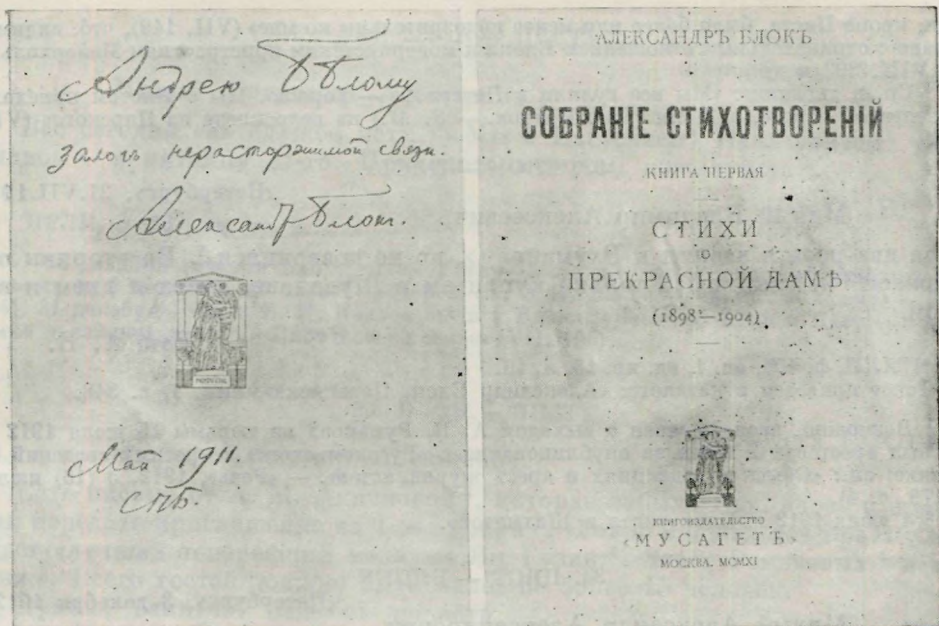 Андрею Бѣлому
залогъ нерасторжимой связи.
Александръ Блокъ.
Май 1911.
СПБ.
АЛЕКСАНДРЪ БЛОКЪ
СОБРАНІЕ СТИХОТВОРЕНІЙ
КНИГА ПЕРВАЯ
СТИХИ
О
ПРЕКРАСНОЙ ДАМѢ
(1898—1904)
КНИГОИЗДАТЕЛЬСТВО
«МУСАГЕТЪ»
МОСКВА. MCMXI